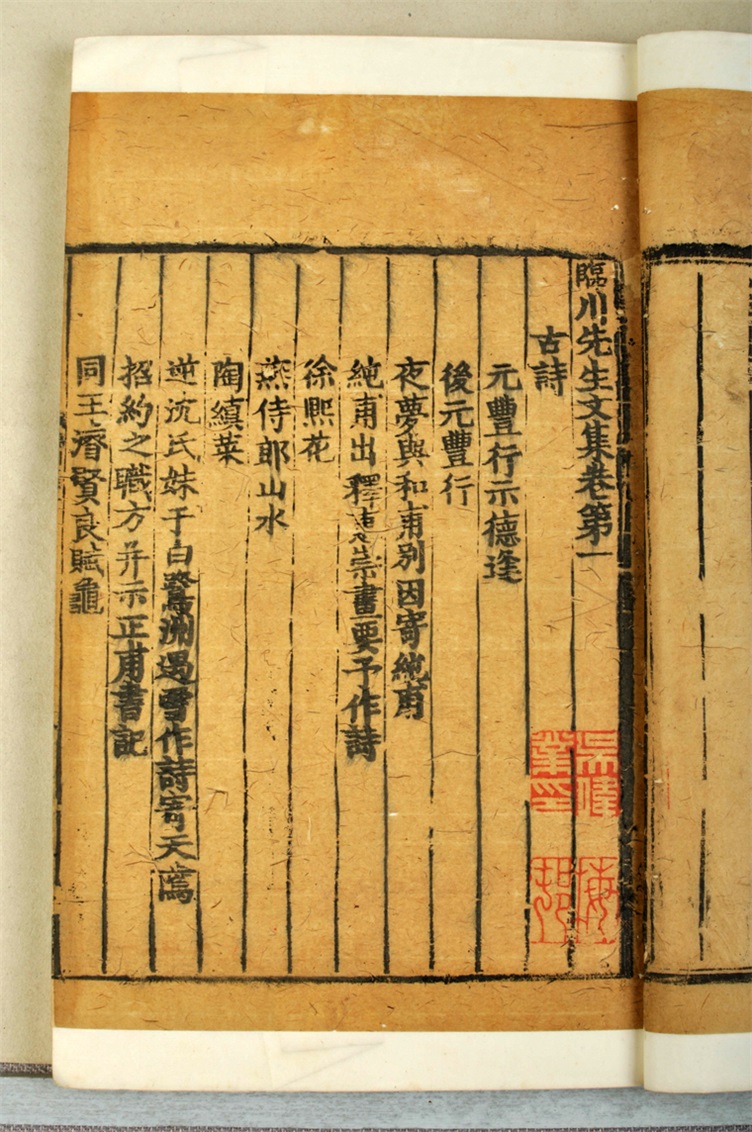 臨川先生文集卷第一
古詩
元豐行示德逢
後元豐行
夜夢與和甫別因寄純甫
純甫出釋惠崇畫要予作詩
徐熙花
燕侍郎山水
陶縝菜
逆沈氏妹于白鷺洲遇雪作詩寄天隲
招約之職方并示正甫書記
同王濬賢良賦龜